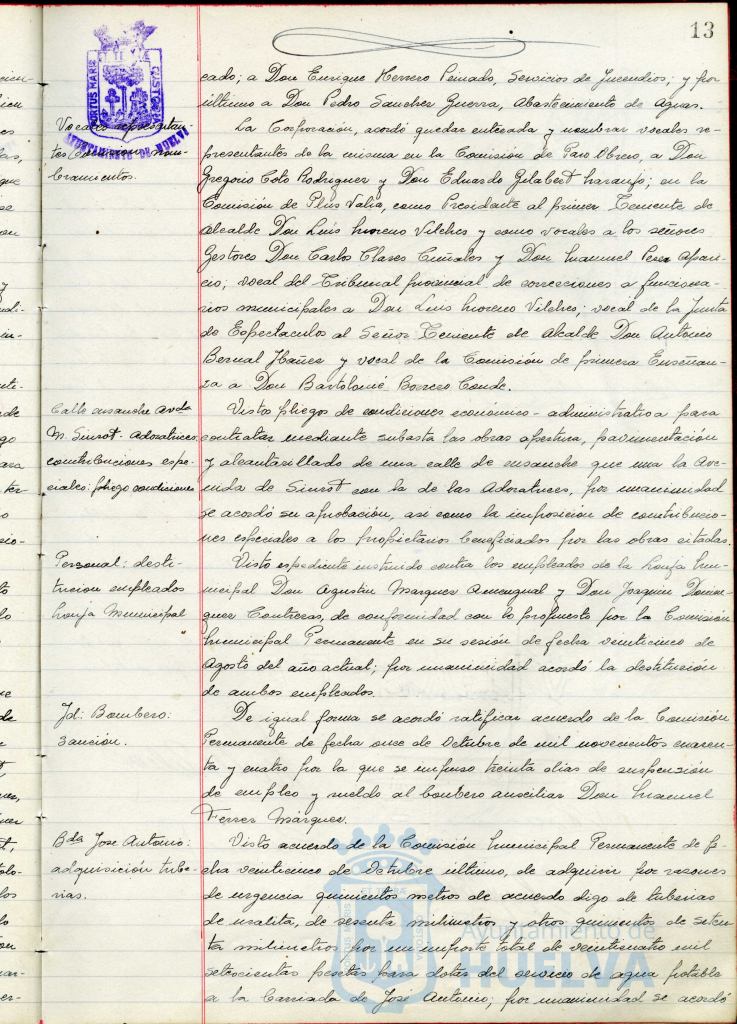 13
cado; a Don Enrique Herrero Peinado, Servicios de Incendios; y por
último a Don Pedro Sanchez Guerra, Abastecimiento de Aguas.
Vocales representan-
tes Comisiones nom-
bramientos.
La Corporación, acordó quedar enterada y nombrar vocales re-
presentantes de la misma en la Comisión de Paro Obrero, a Don
Gregorio Coto Rodriguez y Don Eduardo Gilabert Naranjo; en la
Comisión de Plus Valia, como Presidente al primer Teniente de
Alcalde Don Luis Moreno Vilches y como vocales a los señores
Gestores Don Carlos Clares Cumales y Don Manuel Perez Apari-
cio; vocal del Tribunal provincial de correcciones a funciona-
rios municipales a Don Luis Moreno Vilches; vocal de la Junta
de Espectaculos al Señor Teniente de Alcalde Don Antonio
Bernal Ibañez y vocal de la Comisión de primera Enseñan-
za a Don Bartolomé Borrero Conde.
Calle ensanche Avda
M. Siurot-Adoratrices
contribuciones espe-
ciales: pliego condiciones
Vistos pliegos de condiciones económico-administrativa para
contratar mediante subasta las obras apertura, pavimentación
y alcantarillado de una calle de ensanche que una la Ave-
nida de Siurot con la de las Adoratrices, por unanimidad
se acordó su aprobación, asi como la imposicion de contribucio-
nes especiales a los propietarios beneficiados por las obras citadas.
Personal: desti-
tucion empleados
Lonja Municipal
Visto expediente instruido contra los empleados de la Lonja Mu-
nicipal Don Agustin Marquez Amengual y Don Joaquin Domin-
guez Contreras, de conformidad con lo propuesto por la Comisión
Municipal Permanente en su sesión de fecha veinticinco de
Agosto del año actual; por unanimidad acordó la destitución
de ambos empleados.
Id: Bombero:
sanción.
De igual forma se acordó ratificar acuerdo de la Comisión
Permanente de fecha once de Octubre de mil novecientos cuaren-
ta y cuatro por la que se impuso treinta dias de suspensión
de empleo y sueldo al bombero auxiliar Don Manuel
Ferrer Márquez.
Bda Jose Antonio:
adquisición tube-
rias.
Visto acuerdo de la Comisión Municipal Permanente de fe-
cha veinticinco de Octubre ultimo, de adquirir por razones
de urgencia quinientos metros de acuerdo digo de tuberias
de uralita, de sesenta milimetros y otros quinientos de seten-
ta milimetros por un importe total de veinticuatro mil
setecientas pesetas para dotar del servicio de agua potable
a la barriada de José Antonio; por unanimidad se acordó
PORTUS MARIS ET TERRE CUSTODIA
AYUNTAMIENTO DE HUELVA
Ayuntamiento de
HUELVA